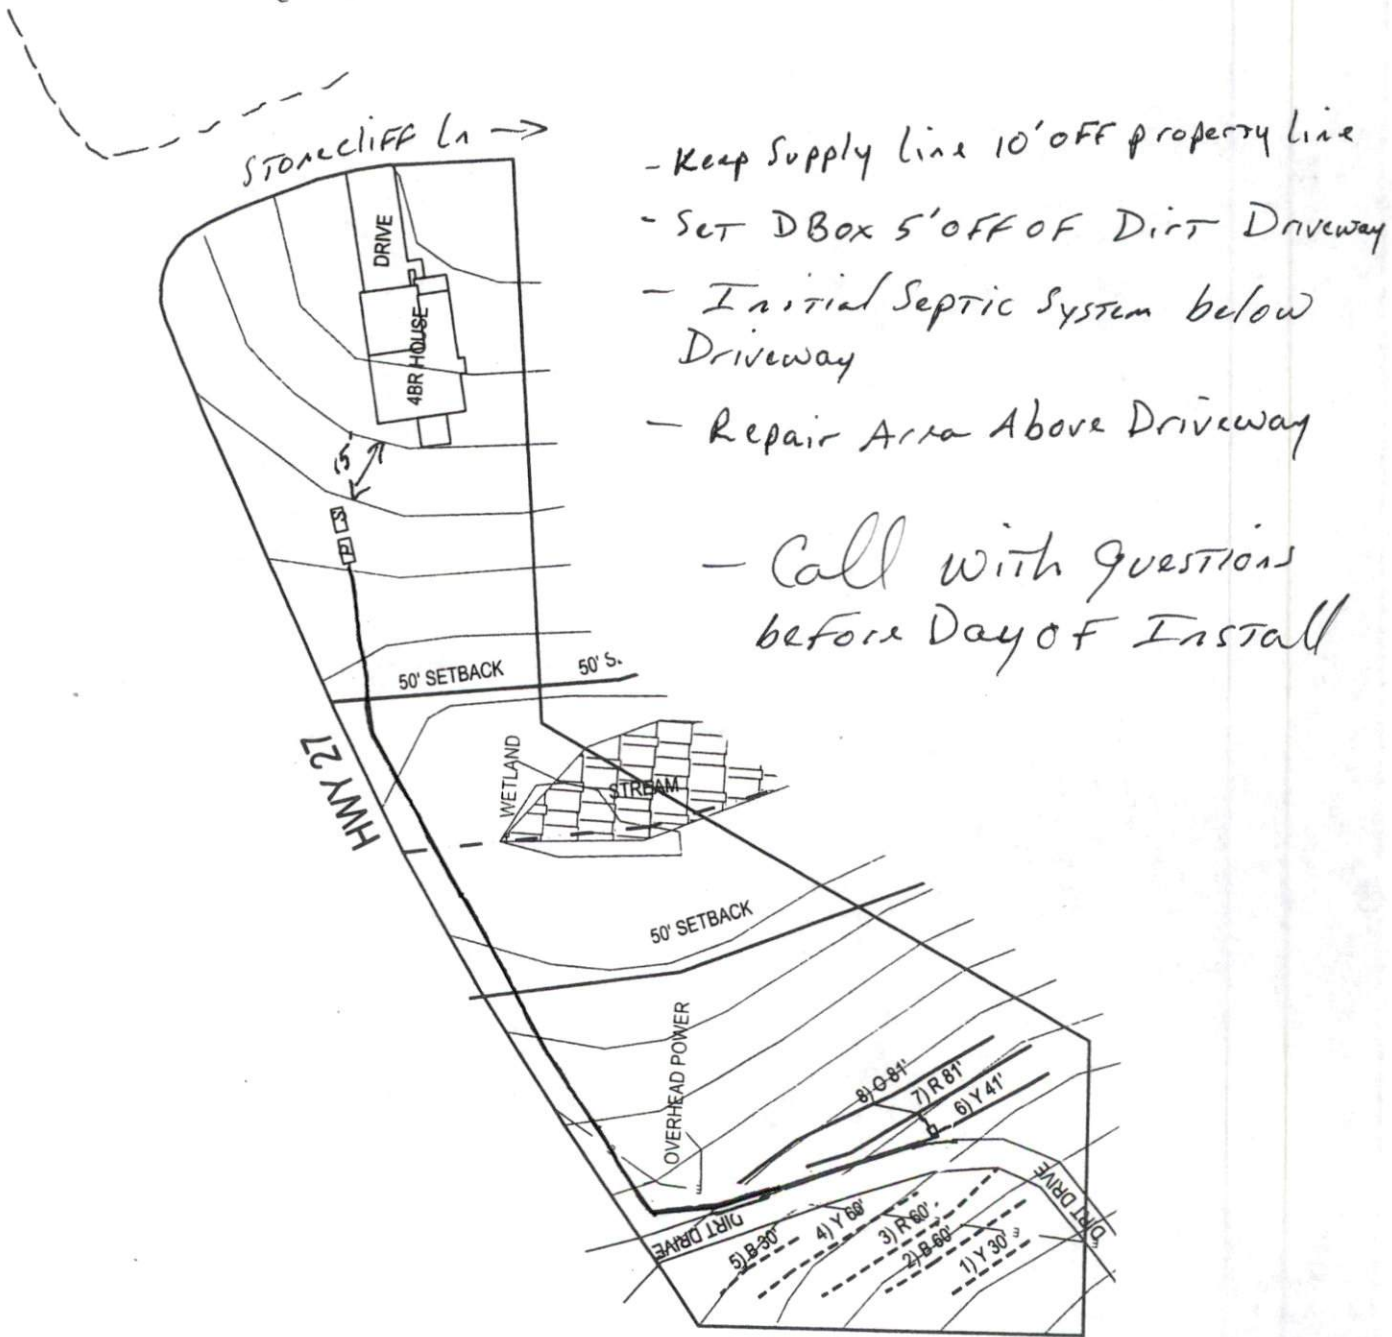 Stonecliff Ln →
- Keep Supply line 10' off property line
- Set DBox 5' off of Dirt Driveway
- Initial Septic System below
Driveway
- Repair Area Above Driveway
- Call with Questions
before Day of Install
DRIVE
4BR HOUSE
15'
S
P
50' SETBACK
50' S.
HWY 27
WETLAND
STREAM
50' SETBACK
OVERHEAD POWER
8) O 81'
7) R 81'
6) Y 41'
D
DIRT DRIVE
DIRT DRIVE
5) B 30'
4) Y 60'
3) R 60'
2) B 60'
1) Y 30'